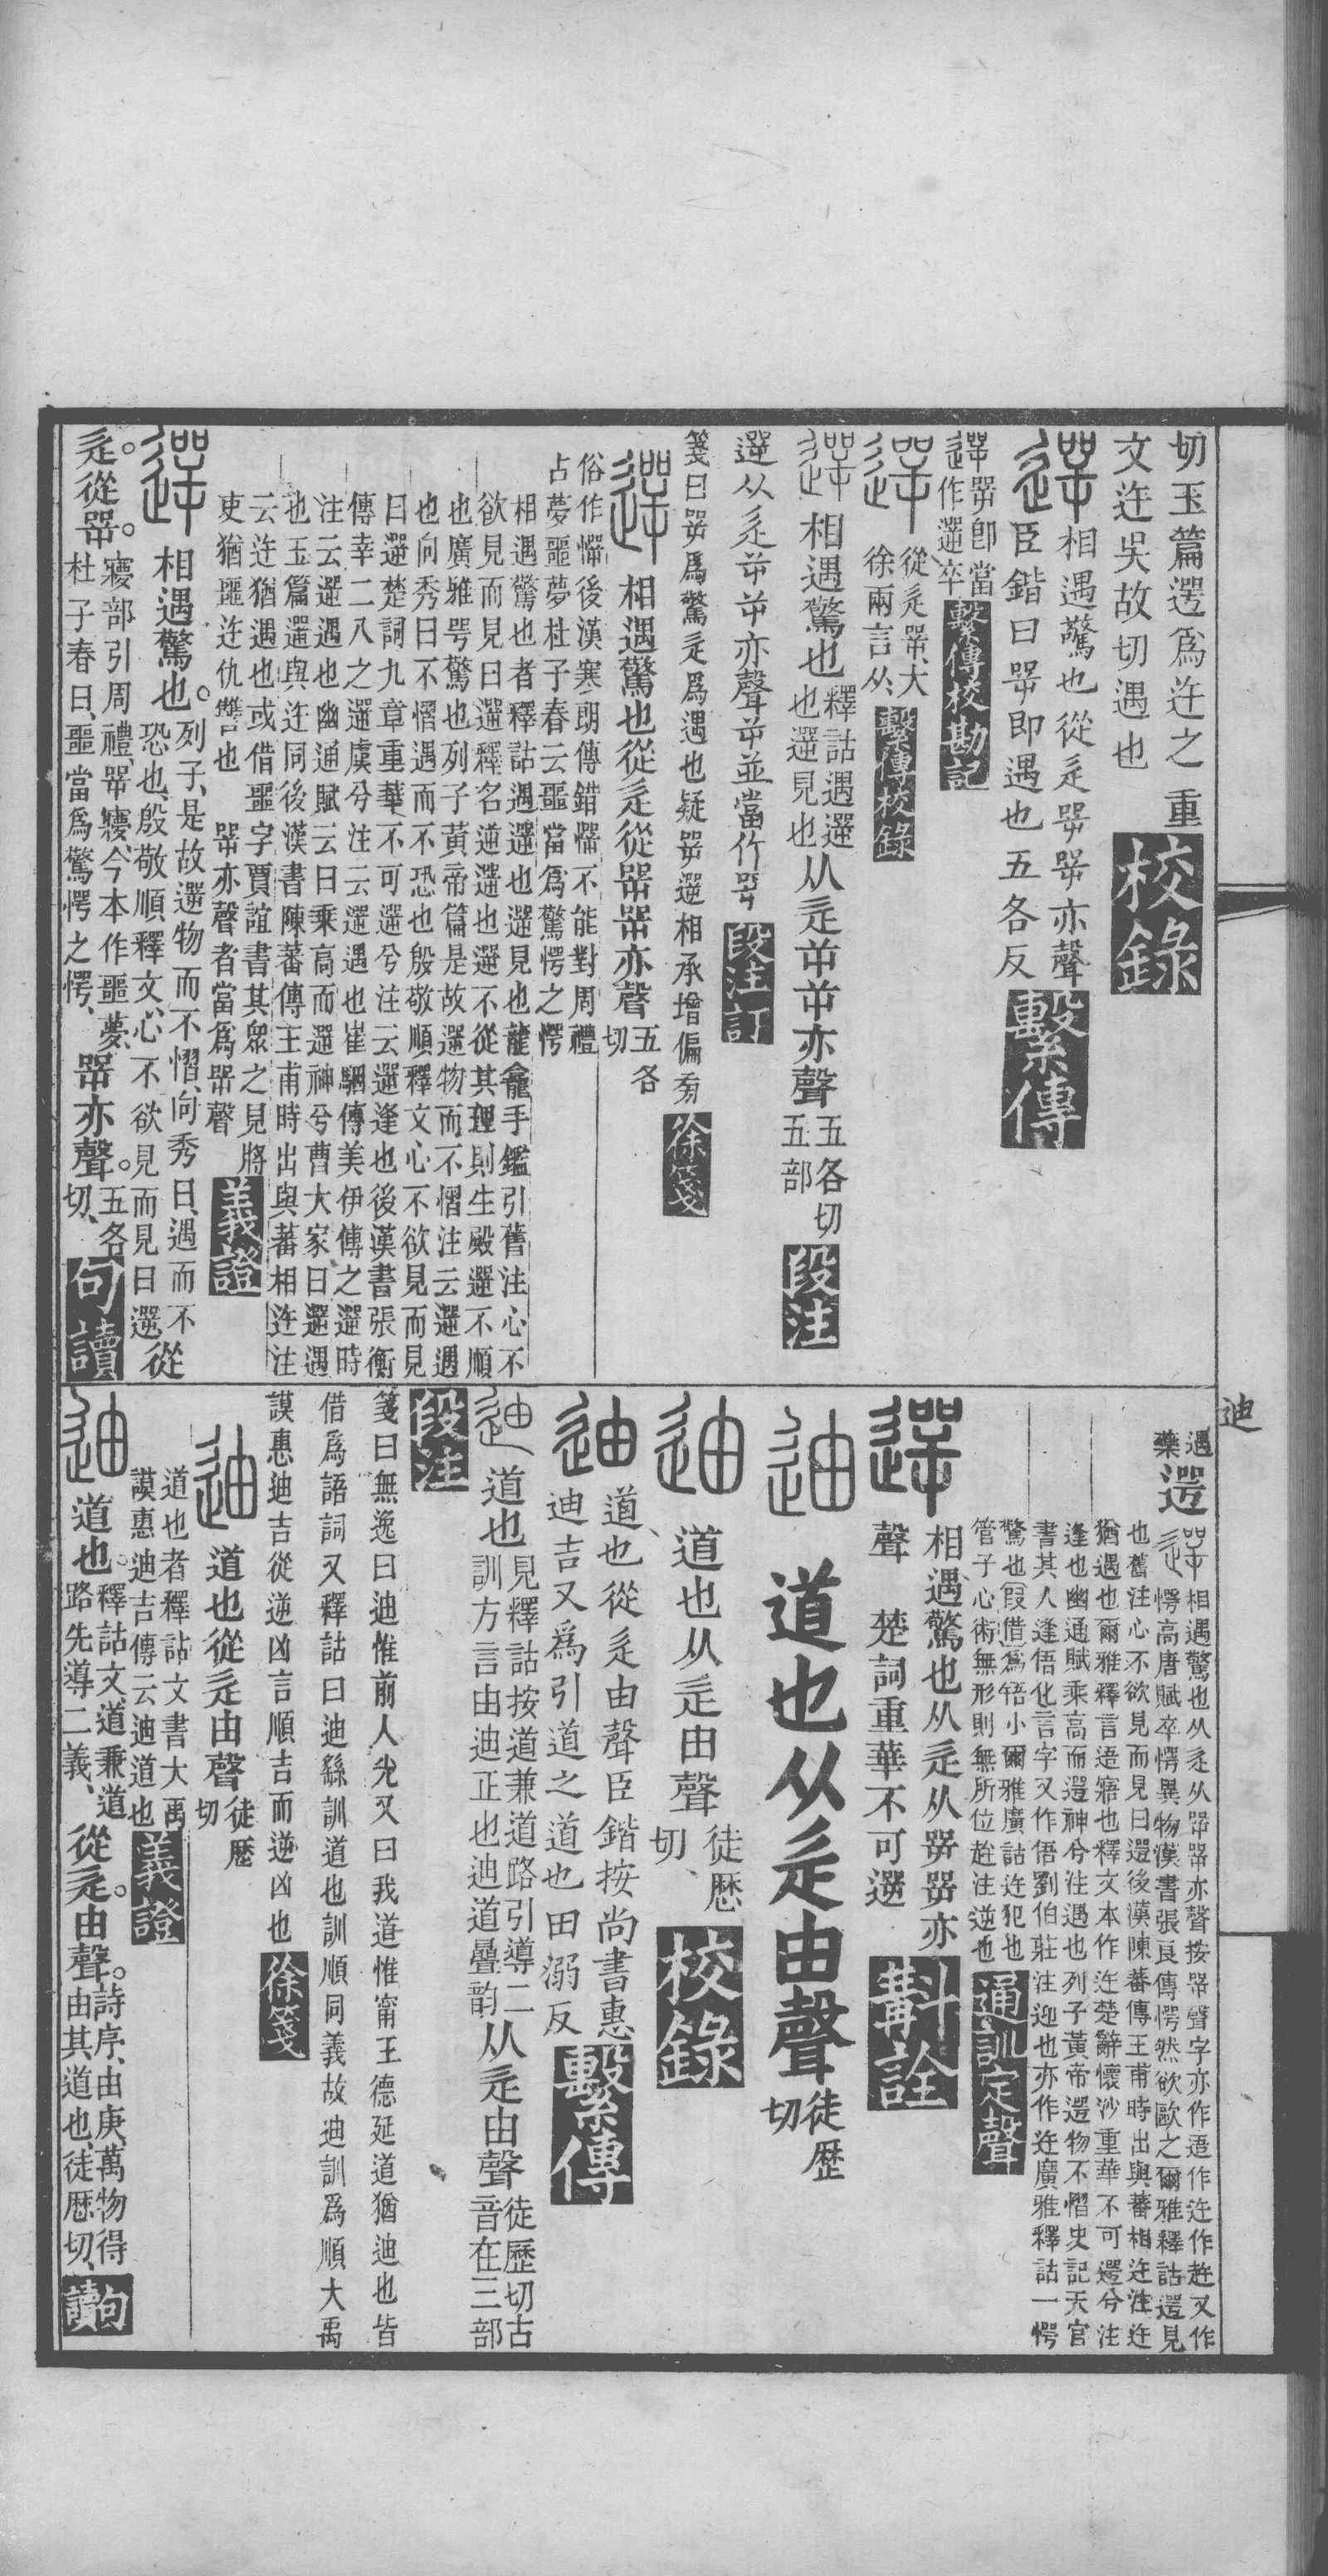 切玉篇遻爲迕之重
文迕吳故切遇也
校錄
相遇驚也從辵㖾㖾亦聲
臣鍇曰㖾即遇也五各反
繫傳
㖾卽當
作遻卒
繫傳校勘記
從辵㖾大
徐兩言从
繫傳校錄
相遇驚也
釋詁遇遻
也遻見也
从辵㖾㖾亦聲
五各切
五部
段注
遻从辵㖾㖾亦聲㖾並當作㖾
段注訂
箋曰㖾爲驚辵爲遇也疑㖾遻相承增偏㫄
徐箋
相遇驚也從辵從㖾㖾亦聲
五各
切
俗作㦍後漢寒朗傳錯㦍不能對周禮
占夢噩夢杜子春云噩當爲驚愕之愕
相遇驚也者釋詁遇遻也遻見也龍龕手鑑引舊注心不
欲見而見曰遻釋名逆遻也遻不從其理則生殿遻不順
也廣雅咢驚也列子黃帝篇是故遻物而不慴注云遻遇
也向秀曰不慴遇而不恐也殷敬順釋文心不欲見而見
曰遻楚詞九章重華不可遻兮注云遻逢也後漢書張衡
傳幸二八之遻虞兮注云遻遇也崔駰傳美伊傅之遻時
注云遻遇也幽通賦云曰乘高而遻神兮曹大家曰遻遇
也玉篇遻與迕同後漢書陳蕃傳王甫時出與蕃相迕注
云迕猶遇也或借噩字賈誼書其眾之見將
吏猶噩迕仇讐也
㖾亦聲者當爲㖾聲
義證
相遇驚也。
列子、是故遻物而不慴、向秀曰、遇而不
恐也、殷敬順釋文、心不欲見而見曰遻
從
辵。從㖾。
㝱部引周禮、㖾㝱、今本作噩夢、
杜子春曰、噩當爲驚愕之愕、
㖾亦聲。
五各
切、
句讀
迪
遇
藥
遻
相遇驚也从辵从㖾㖾亦聲按㖾聲字亦作遌作迕作趑又作
愕高唐賦卒愕異物漢書張良傳愕然欲歐之爾雅釋詁遻見
也舊注心不欲見而見曰遻後漢陳蕃傳王甫時出與蕃相迕注迕
猶遇也爾雅釋言逜寤也釋文本作迕楚辭懷沙重華不可遻兮注
逢也幽通賦乘高而遻神兮注遇也列子黃帝遻物不慴史記天官
書其人逢俉化言字又作俉劉伯莊注迎也亦作迕廣雅釋詁一愕
驚也叚借爲啎小爾雅廣詁迕犯也
管子心術無形則無所位䞤注逆也
通訓定聲
相遇驚也从辵从㖾㖾亦
聲　楚詞重華不可遻
斠詮
道也从辵由聲
徒歷
切
道也从辵由聲
徒歷
切、
校錄
道、也從辵由聲臣鍇按尚書惠
迪吉又爲引道之道也田溺反
繫傳
道也
見釋詁按道兼道路引導二
訓方言由迪正也迪道曡韵
从辵由聲
徒歷切古
音在三部
段注
箋曰無逸曰迪惟前人光又曰我道惟甯王德延道猶迪也皆
借爲語詞又釋詁曰迪繇訓道也訓順同義故迪訓爲順大禹
謨惠迪吉從逆凶言順吉而逆凶也
徐箋
道也從辵由聲
徒歷
切
道也者釋詁文書大禹
謨惠迪吉傳云迪道也
義證
道也。
釋詁文道兼道
路先導二義、
從辵。由聲。
詩序、由庚、萬物得
由其道也、徒歷切、
句讀